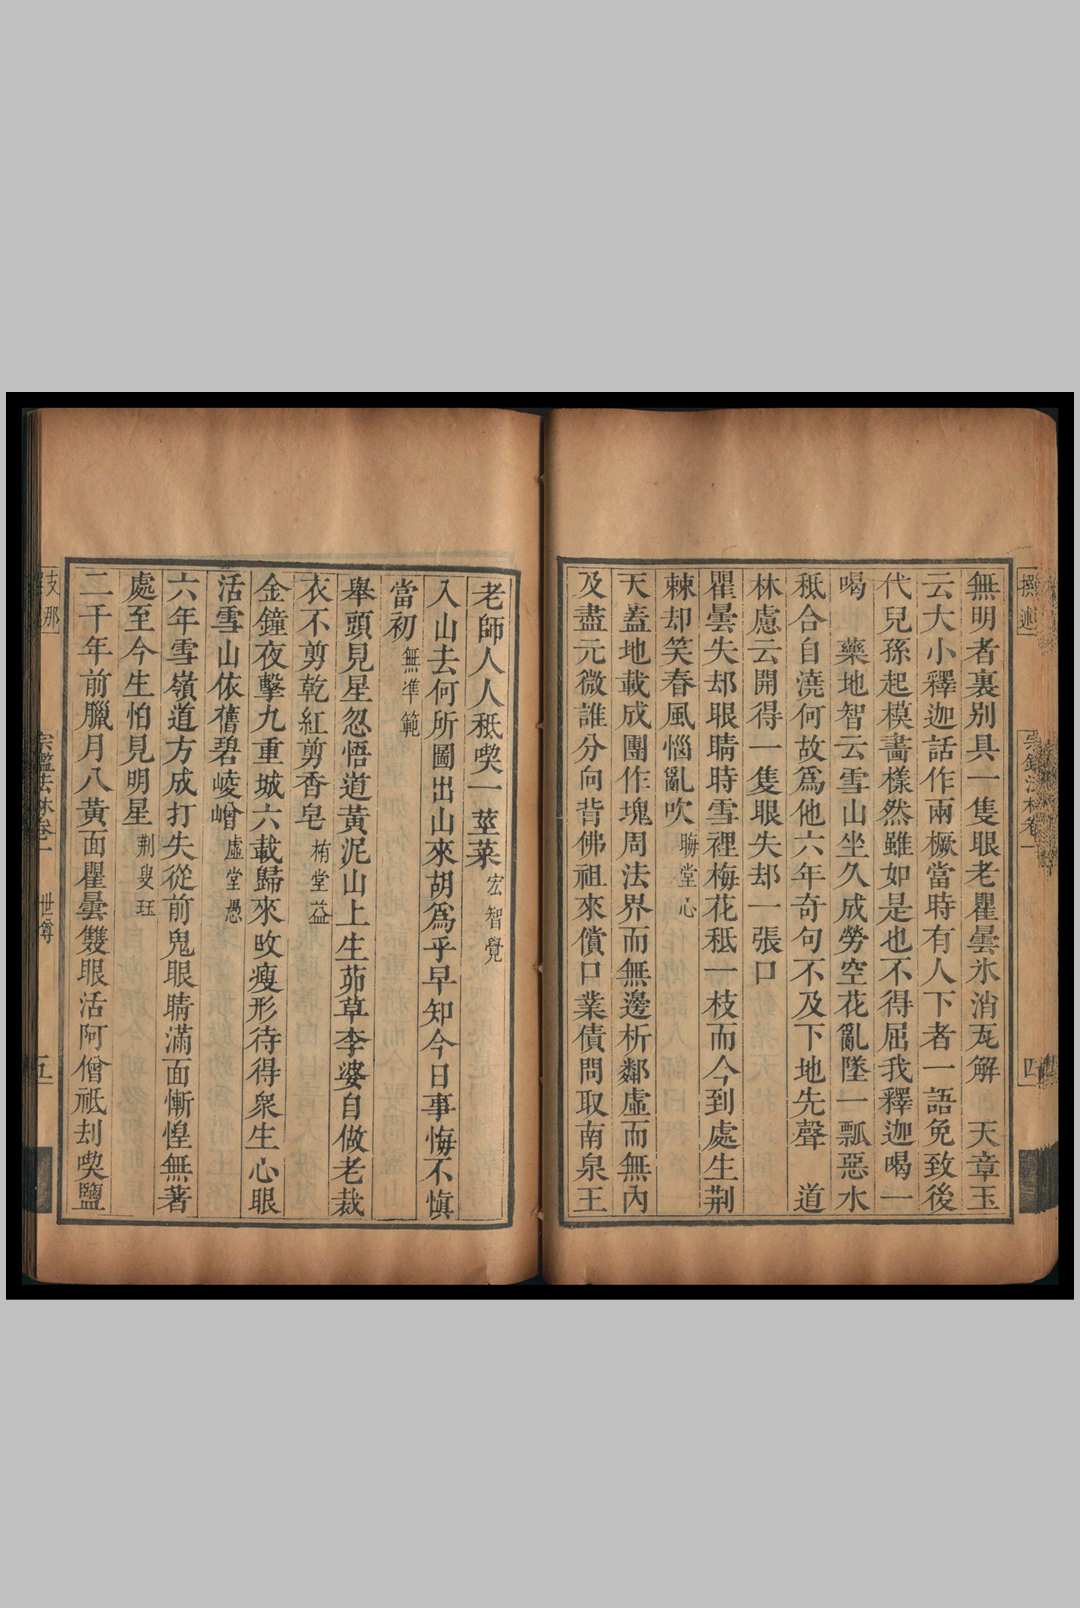 無明者裏別具一隻眼老瞿曇氷消瓦解　天章玉
云大小釋迦話作兩橛當時有人下者一語免致後
代兒孫起模畵樣然雖如是也不得屈我釋迦喝一
喝　藥地智云雪山坐久成勞空花亂墜一瓢惡水
秖合自澆何故爲他六年奇句不及下地先聲　道
林慮云開得一隻眼失却一張口
瞿曇失却眼睛時雪裡梅花秪一枝而今到處生荆
棘却笑春風惱亂吹 晦堂心
天蓋地載成團作塊周法界而無邊析鄰虛而無內
及盡元微誰分向背佛祖來償口業債問取南泉王
老師人人秪喫一莖菜 宏智覺
入山去何所圖出山來胡爲乎早知今日事悔不愼
當初 無準範
舉頭見星忽悟道黃泥山上生茆草李婆自做老裁
衣不剪乾紅剪香皂 栯堂益
金鐘夜擊九重城六載歸來攺瘦形待得衆生心眼
活雪山依舊碧崚嶒 虛堂愚
六年雪嶺道方成打失從前鬼眼睛滿面慚惶無著
處至今生怕見明星 荆叟珏
二千年前臘月八黃面瞿曇雙眼活阿僧祗刦喫鹽
撰述
宗鑑法林卷一
四
支那
宗鑑法林卷一
世尊
五